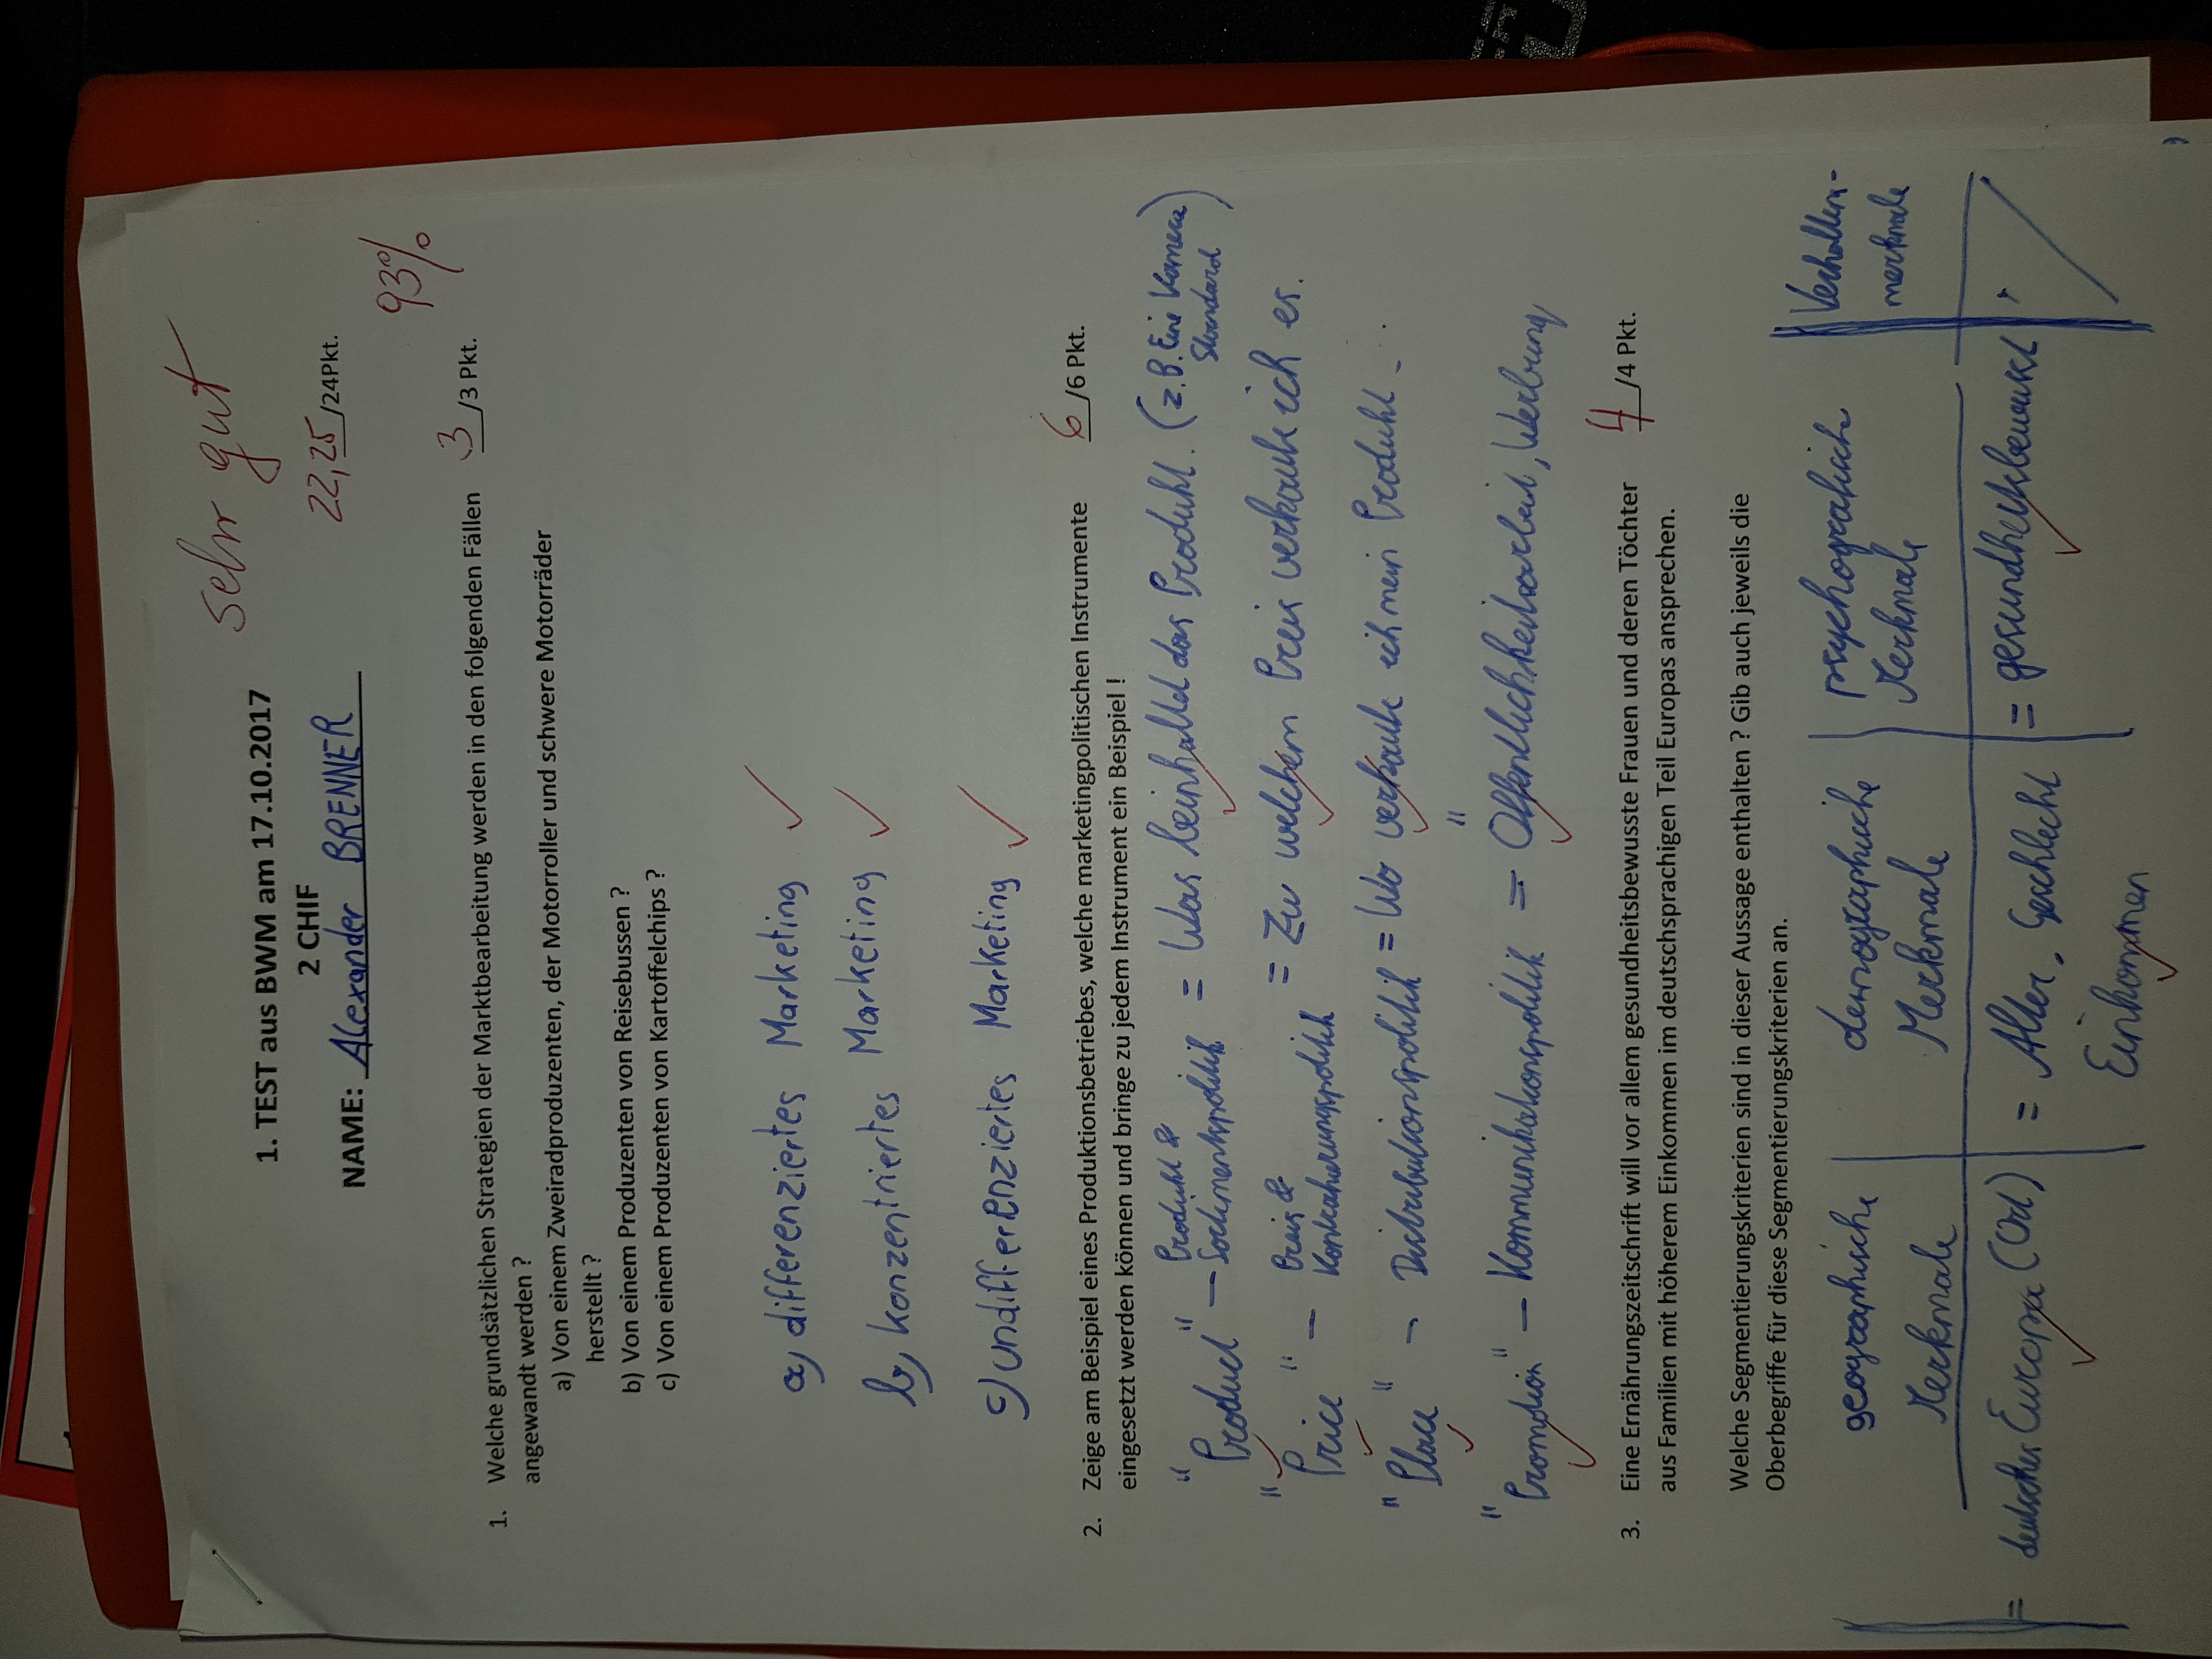 sehr gut
1. TEST aus BWM am 17.10.2017
2 CHIF
NAME: Alexander BRENNER
22,25/24Pkt.
93%
1. Welche grundsätzlichen Strategien der Marktbearbeitung werden in den folgenden Fällen 3/3 Pkt.
angewandt werden ?
a) Von einem Zweiradproduzenten, der Motorroller und schwere Motorräder
herstellt ?
b) Von einem Produzenten von Reisebussen ?
c) Von einem Produzenten von Kartoffelchips ?
a) differenziertes Marketing ✓
b) konzentriertes Marketing ✓
c) undifferenziertes Marketing ✓
2. Zeige am Beispiel eines Produktionsbetriebes, welche marketingpolitischen Instrumente 6/6 Pkt.
eingesetzt werden können und bringe zu jedem Instrument ein Beispiel !
"Product" – Produkt & Sortimentspolitik = Was beinhalted das Produkt. (z.B. Eine Kamera
Standard)
"Price" – Preis & Kontrahierungspolitik = Zu welchem Preis verkaufe ich es.
"Place" – Distributionspolitik = Wo verkaufe ich mein Produkt.
"Promotion" – Kommunikationspolitik = Öffentlichkeitsarbeit, Werbung
3. Eine Ernährungszeitschrift will vor allem gesundheitsbewusste Frauen und deren Töchter 4/4 Pkt.
aus Familien mit höherem Einkommen im deutschsprachigen Teil Europas ansprechen.
Welche Segmentierungskriterien sind in dieser Aussage enthalten ? Gib auch jeweils die
Oberbegriffe für diese Segmentierungskriterien an.
geographische demographische psychografische Verhaltens-
Merkmale Merkmale Merkmale merkmale
= deutsches Europa (Ort) = Alter, Geschlecht = gesundheitsbewusst
Einkommen